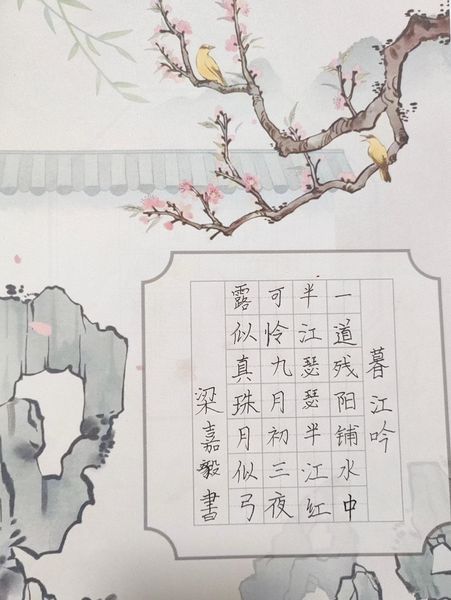 暮江吟
一道残阳铺水中
半江瑟瑟半江红
可怜九月初三夜
露似真珠月似弓
梁嘉毅書